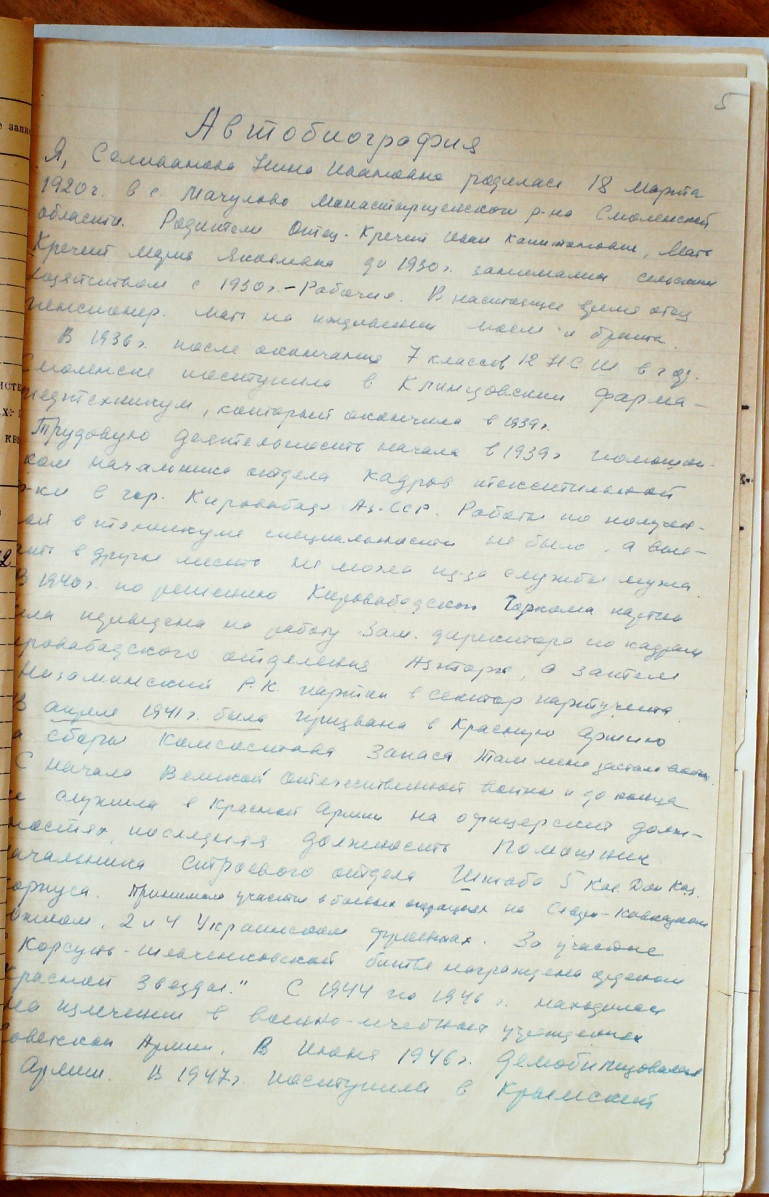 5
Автобиография
Я, Селиванова Нина Ивановна родилась 18 марта
1920 г. в с. Мачулово Монастырщенского р-на Смоленской
области. Родители Отец - Кречет Иван Капитонович, Мать
Кречет Мария Яковлевна до 1930 г. занимались сельским
хозяйством с 1930 г. - Рабочие. В настоящее время отец
пенсионер. Мать на иждивении моем и брата.
В 1936 г. после окончания 7 классов 12 НСШ в гор.
Смоленске поступила в Клинцовский фарма-
цедтехникум, который окончила в 1939 г.
Трудовую деятельность начала в 1939 г помощни-
ком начальника отдела кадров текстильной
ф-ки в гор. Кировабаде Аз. ССР. Работы по получен-
ой в техникуме специальности не было, а вые-
хать в другое место не могла из-за службы мужа.
В 1940 г. по решению Кировабадского Горкома партии
была на работу Зам. директора по кадрам
ировабадского отделения Азторга, а затем
Низаминский Р.К партии в сектор партучета.
В апреле 1941 г. была призвана в Красную Армию
а сборы Комсостава Запаса Там меня застала война.
С начала Великой отечественной войны и до конца
служила в Красной Армии на офицерских долж-
ностях, последняя должность Помощник
ачальника строевого отдела Штаба 5 Кав. Дон Каз.
орпуса. Принимала участие в боевых операциях на Северо-Кавказском
2 и 4 Украинском фронтах. За участие
Корсунь-шевченковской битве награждена орденом
расной Звезды." С 1944 по 1946 г. находилась
на излечении в военно-лечебных учреждениях
оветской Армии. В Июне 1946 г. демобилизовалась
Армии. В 1947 г. поступила в Крымский